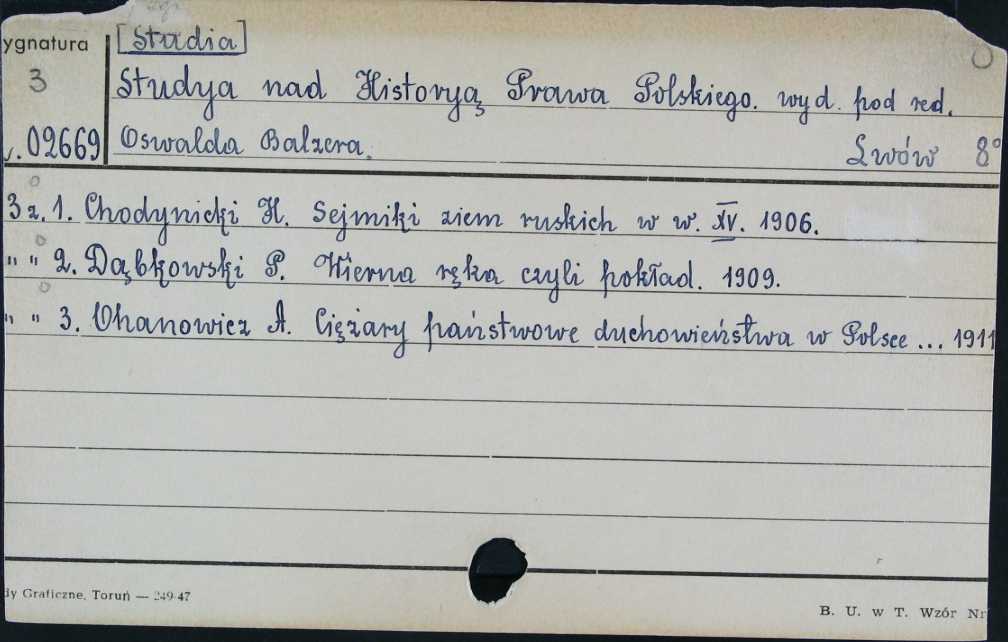 ygnatura [Studia]
3 Studya nad Historyą Prawa Polskiego. wyd. pod red.
02669 Oswalda Balzera. Lwów 8°
3 z. 1. Chodynicki H. Sejmiki ziem ruskich w w. XV. 1906.
" " 2. Dąbkowski P. Wierna ręka czyli pokład. 1909.
" " 3. Ohanowicz A. Ciężary państwowe duchowieństwa w Polsce ... 1911
dy Graficzne, Toruń — 249/47
B. U. w T. Wzór Nr